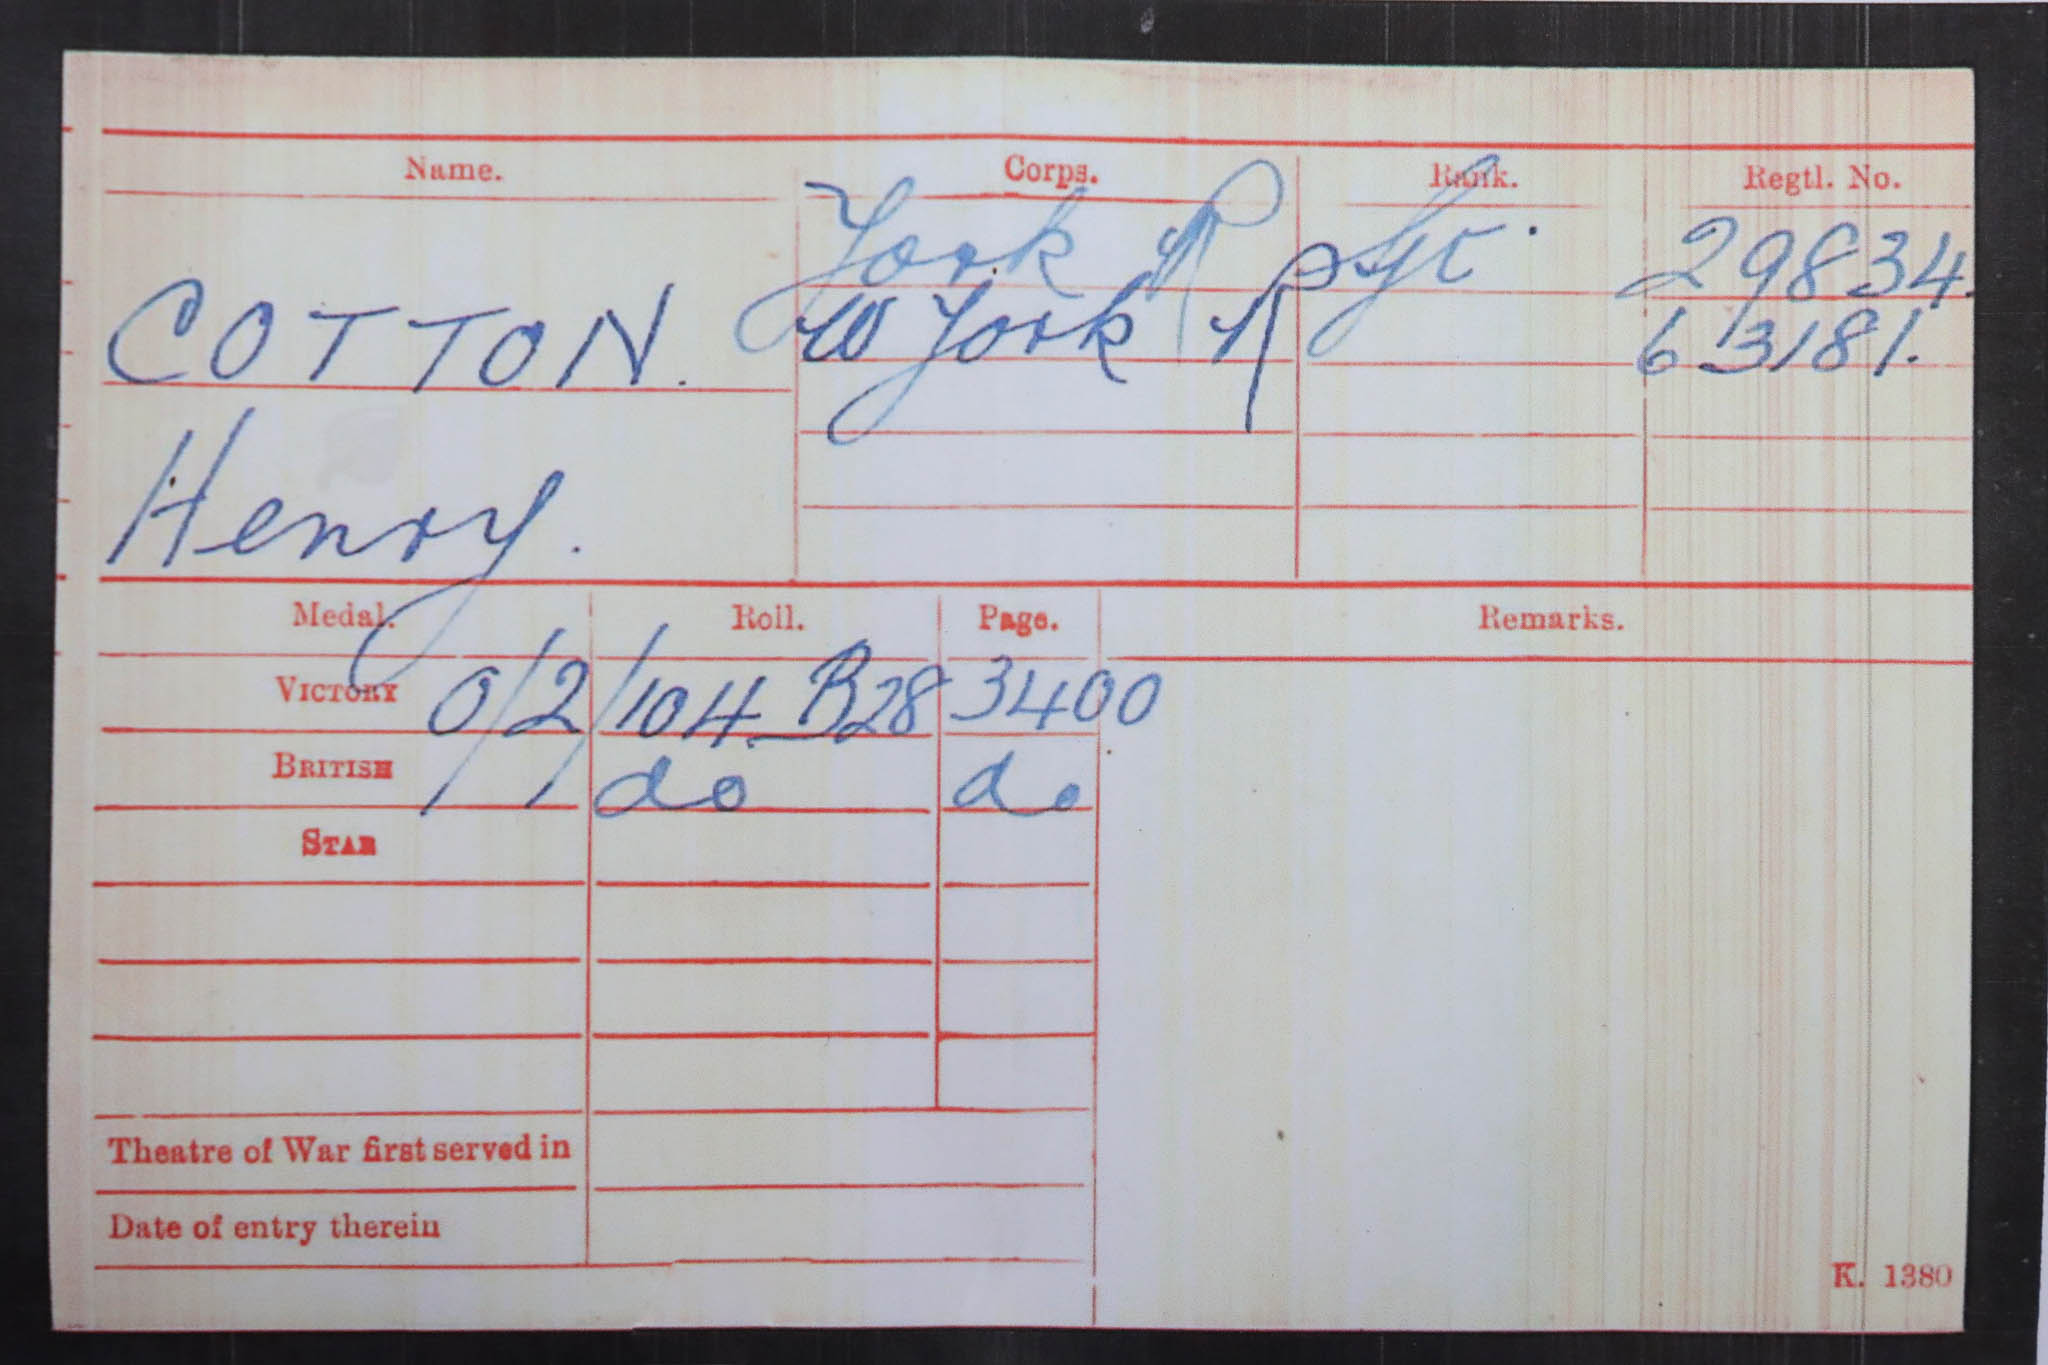 Name. Corps. Rank. Regtl. No.
York R Pte. 29834.
COTTON. W York R 63181.
Henry.
Medal. Roll. Page. Remarks.
VICTORY 0/2/104 B28 3400
BRITISH do do
STAR
Theatre of War first served in
Date of entry therein
K. 1380